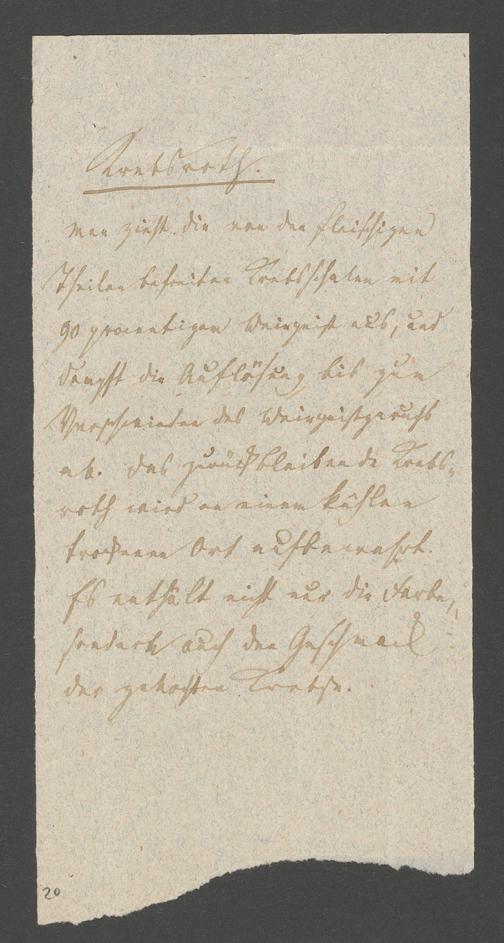 Krebsroth.
Man zieht die von den fleischigen
Theilen befreiten Krebsschalen mit
90 procentigem Weingeist aus, und
dampft die Auflösung bis zum
Verschwinden des Weingeistgeruchs
ab. Das zurückbleibende Krebs-
roth wird an einem kühlen
trockenen Ort aufbewahrt.
Es enthält nicht nur die Farbe,
sondern auch den Geschmack
der gekochten Krebse.
20